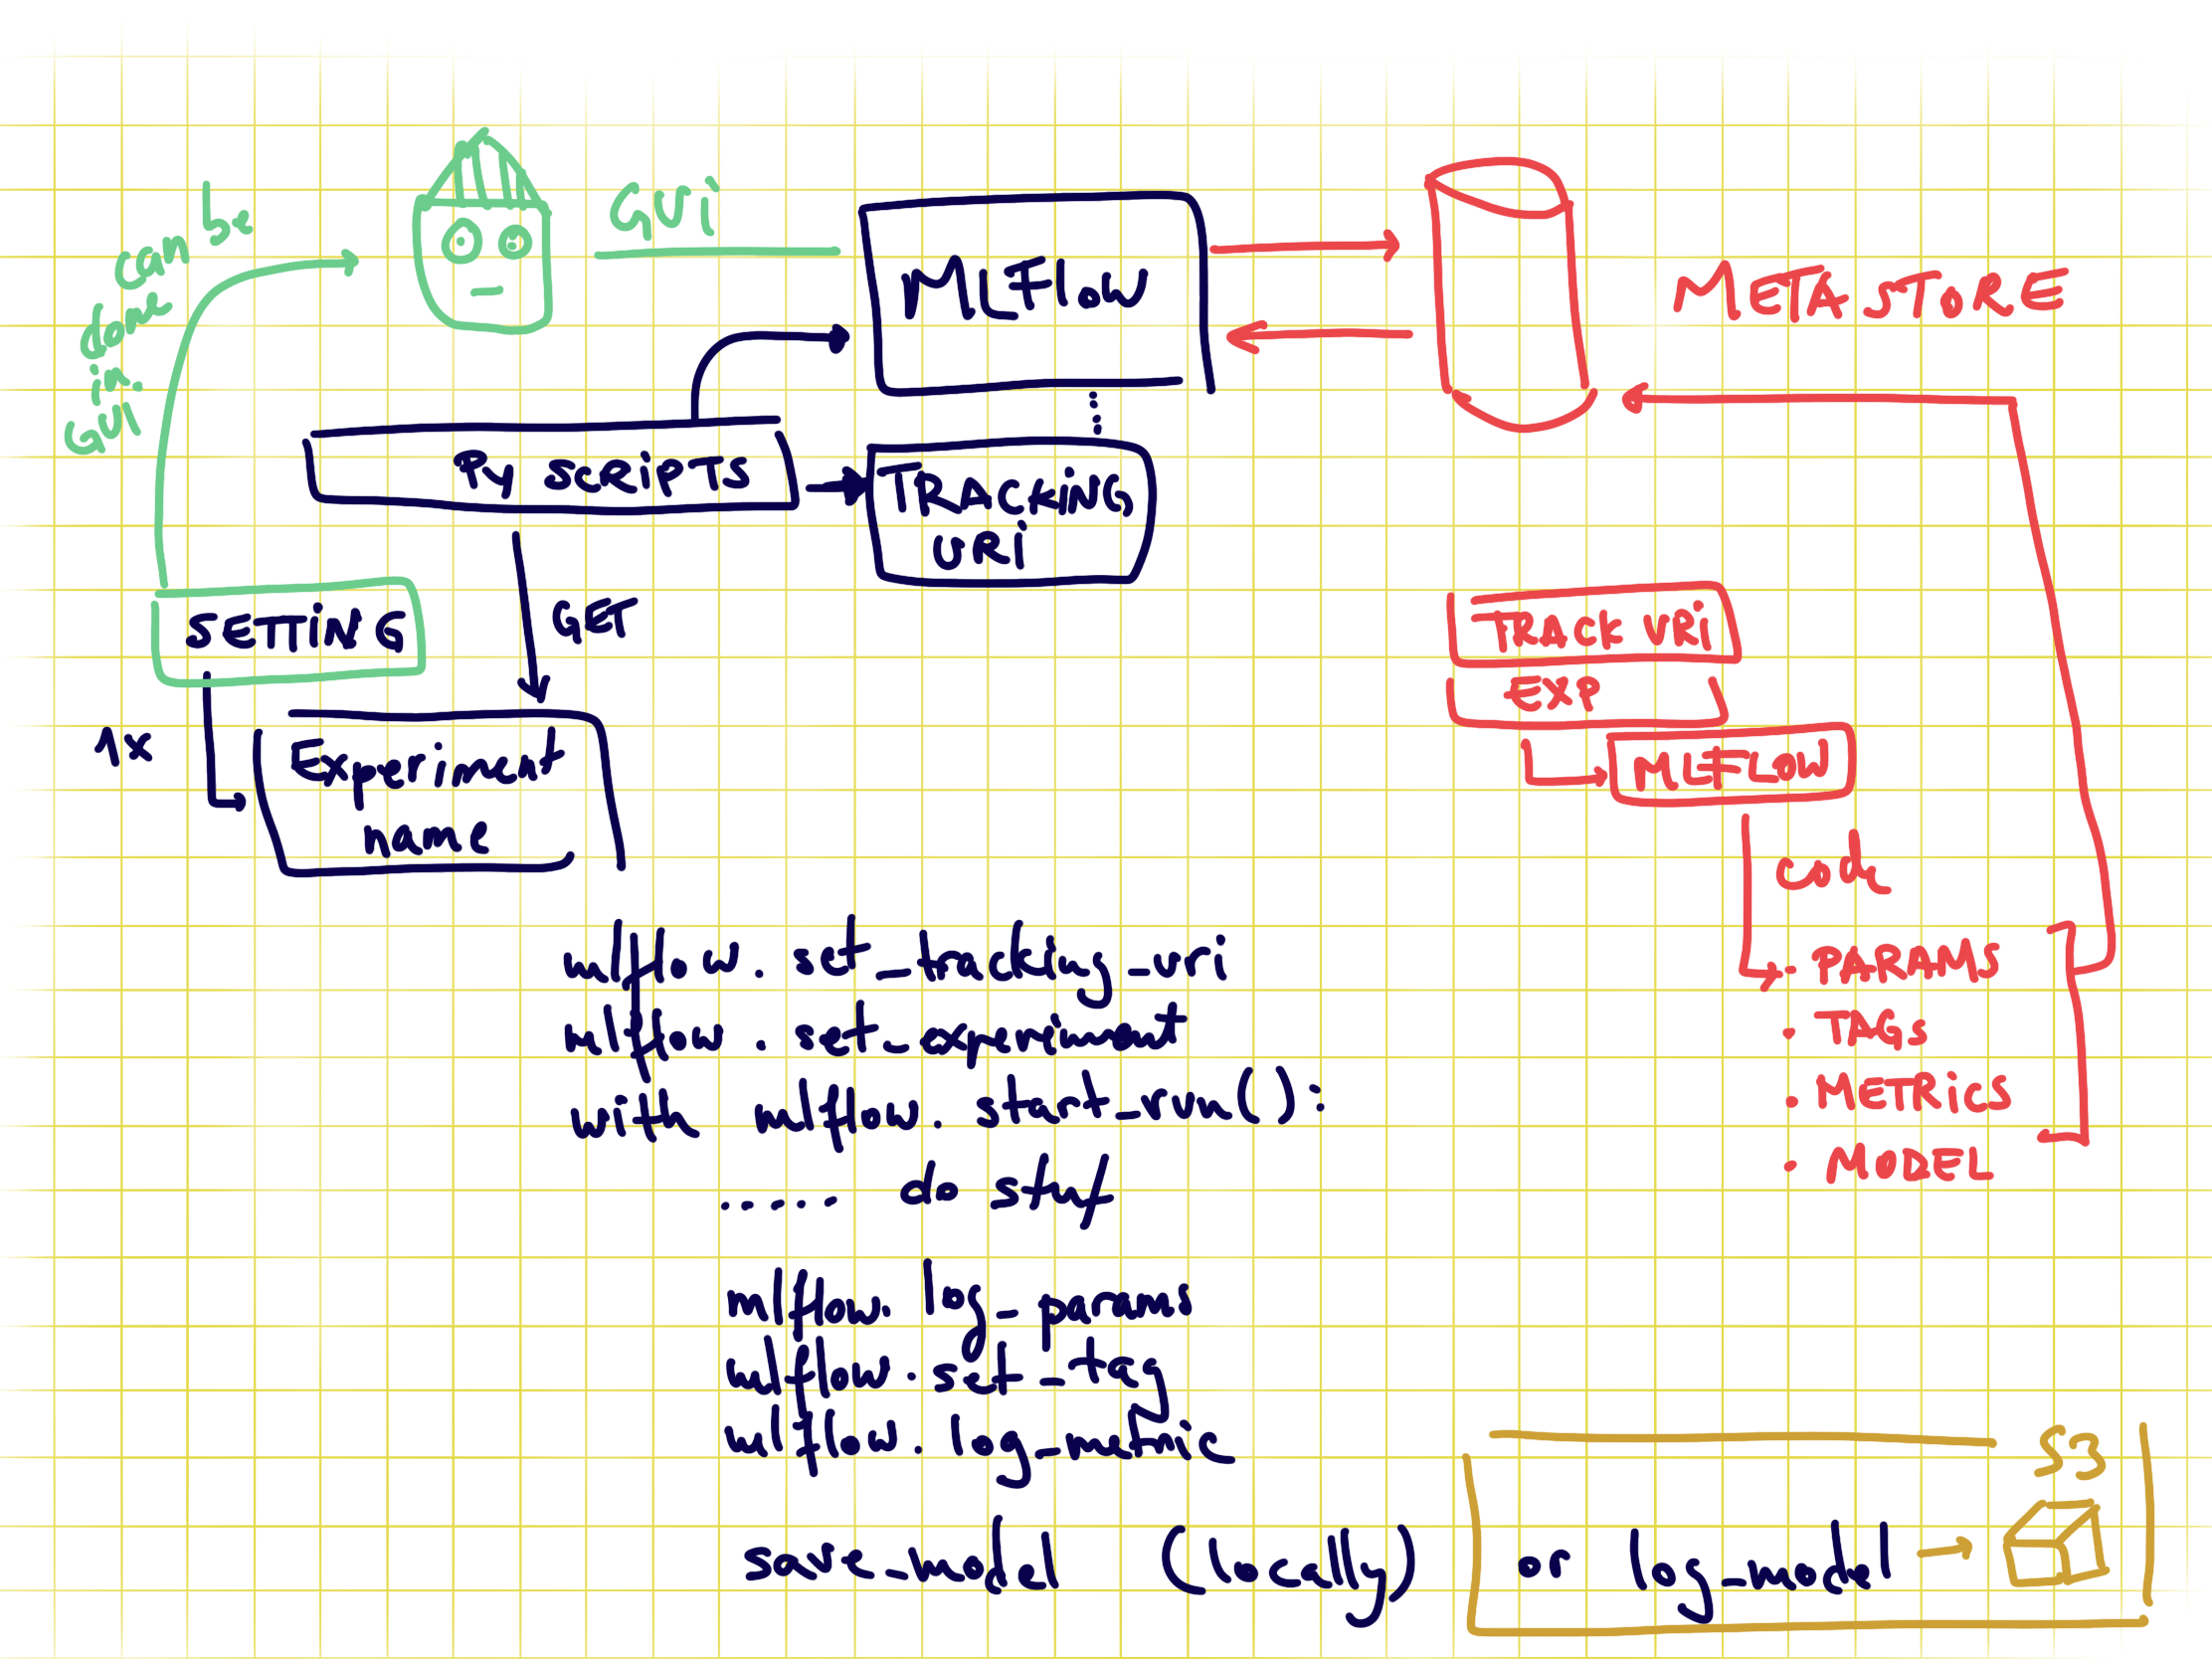 can be
done
in
GUI
GUI
MLFlow
METASTORE
Py SCRIPTS
TRACKING
URI
SETTING
GET
1x
Experiment
name
TRACK URI
EXP
MLFLOW
code
mlflow. set_tracking_uri
mlflow. set_experiment
with mlflow. start_run():
..... do stuf
· PARAMS
· TAGS
· METRICS
· MODEL
mlflow. log_params
mlflow. set_tag
mlflow. log_metric
S3
save_model (locally) or log_model →